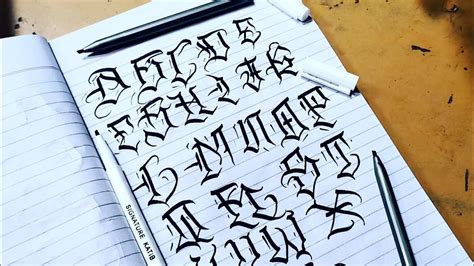 A B C D E
F G H I J K
L M N O P
Q R S T
U V W X
SIGNATURE KATIB